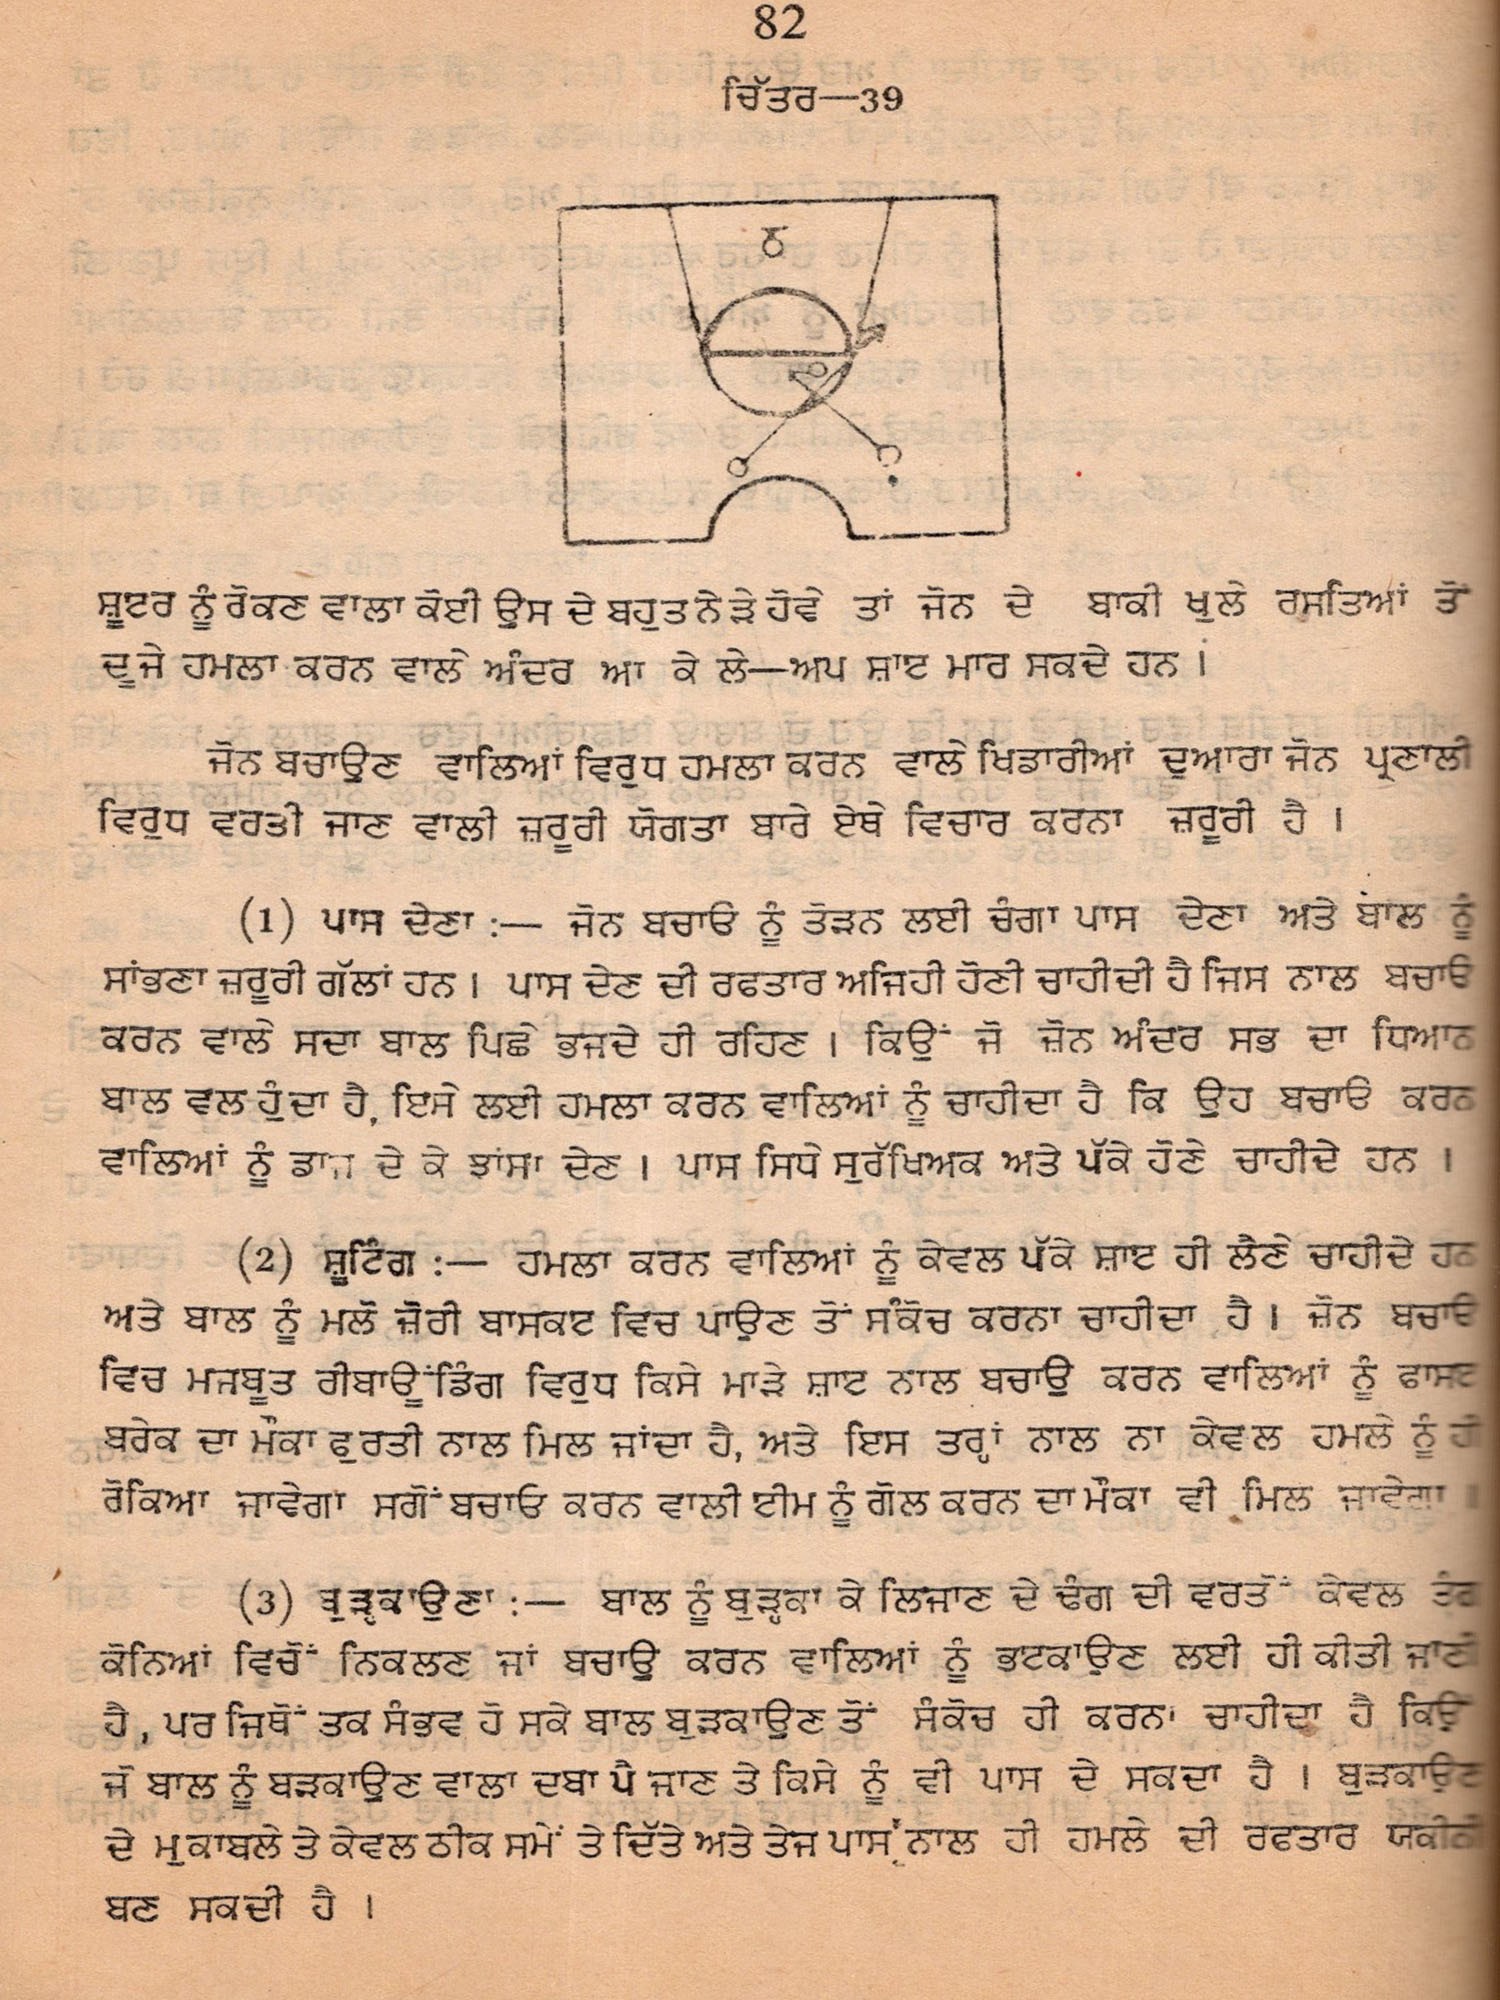 82
ਚਿੱਤਰ—39
ਸ਼ੂਟਰ ਨੂੰ ਰੋਕਣ ਵਾਲਾ ਕੋਈ ਉਸ ਦੇ ਬਹੁਤ ਨੇੜੇ ਹੋਵੇ ਤਾਂ ਜ਼ੋਨ ਦੇ ਬਾਕੀ ਖੁਲੇ ਰਸਤਿਆਂ ਤੋਂ
ਦੂਜੇ ਹਮਲਾ ਕਰਨ ਵਾਲੇ ਅੰਦਰ ਆ ਕੇ ਲੇ—ਅਪ ਸ਼ਾਟ ਮਾਰ ਸਕਦੇ ਹਨ ।
ਜ਼ੋਨ ਬਚਾਉਣ ਵਾਲਿਆਂ ਵਿਰੁਧ ਹਮਲਾ ਕਰਨ ਵਾਲੇ ਖਿਡਾਰੀਆਂ ਦੁਆਰਾ ਜ਼ੋਨ ਪ੍ਰਣਾਲੀ
ਵਿਰੁਧ ਵਰਤੀ ਜਾਣ ਵਾਲੀ ਜ਼ਰੂਰੀ ਯੋਗਤਾ ਬਾਰੇ ਏਥੇ ਵਿਚਾਰ ਕਰਨਾ ਜ਼ਰੂਰੀ ਹੈ ।
(1) ਪਾਸ ਦੇਣਾ :— ਜ਼ੋਨ ਬਚਾਓ ਨੂੰ ਤੋੜਨ ਲਈ ਚੰਗਾ ਪਾਸ ਦੇਣਾ ਅਤੇ ਬਾਲ ਨੂੰ
ਸਾਂਭਣਾ ਜ਼ਰੂਰੀ ਗੱਲਾਂ ਹਨ । ਪਾਸ ਦੇਣ ਦੀ ਰਫਤਾਰ ਅਜਿਹੀ ਹੋਣੀ ਚਾਹੀਦੀ ਹੈ ਜਿਸ ਨਾਲ ਬਚਾਓ
ਕਰਨ ਵਾਲੇ ਸਦਾ ਬਾਲ ਪਿਛੇ ਭਜਦੇ ਹੀ ਰਹਿਣ । ਕਿਉਂ ਜੋ ਜ਼ੋਨ ਅੰਦਰ ਸਭ ਦਾ ਧਿਆਨ
ਬਾਲ ਵਲ ਹੁੰਦਾ ਹੈ, ਇਸੇ ਲਈ ਹਮਲਾ ਕਰਨ ਵਾਲਿਆਂ ਨੂੰ ਚਾਹੀਦਾ ਹੈ ਕਿ ਉਹ ਬਚਾਓ ਕਰਨ
ਵਾਲਿਆਂ ਨੂੰ ਡਾਜ ਦੇ ਕੇ ਝਾਂਸਾ ਦੇਣ । ਪਾਸ ਸਿਧੇ ਸੁਰੱਖਿਅਕ ਅਤੇ ਪੱਕੇ ਹੋਣੇ ਚਾਹੀਦੇ ਹਨ ।
(2) ਸ਼ੂਟਿੰਗ :— ਹਮਲਾ ਕਰਨ ਵਾਲਿਆਂ ਨੂੰ ਕੇਵਲ ਪੱਕੇ ਸ਼ਾਟ ਹੀ ਲੈਣੇ ਚਾਹੀਦੇ ਹਨ
ਅਤੇ ਬਾਲ ਨੂੰ ਮਲੋ ਜ਼ੋਰੀ ਬਾਸਕਟ ਵਿਚ ਪਾਉਣ ਤੋਂ ਸੰਕੋਚ ਕਰਨਾ ਚਾਹੀਦਾ ਹੈ । ਜ਼ੋਨ ਬਚਾਓ
ਵਿਚ ਮਜਬੂਤ ਰੀਬਾਊਂਡਿੰਗ ਵਿਰੁਧ ਕਿਸੇ ਮਾੜੇ ਸ਼ਾਟ ਨਾਲ ਬਚਾਉ ਕਰਨ ਵਾਲਿਆਂ ਨੂੰ ਫਾਸਟ
ਬਰੇਕ ਦਾ ਮੌਕਾ ਫੁਰਤੀ ਨਾਲ ਮਿਲ ਜਾਂਦਾ ਹੈ, ਅਤੇ ਇਸ ਤਰ੍ਹਾਂ ਨਾਲ ਨਾ ਕੇਵਲ ਹਮਲੇ ਨੂੰ ਹੀ
ਰੋਕਿਆ ਜਾਵੇਗਾ ਸਗੋਂ ਬਚਾਓ ਕਰਨ ਵਾਲੀ ਟੀਮ ਨੂੰ ਗੋਲ ਕਰਨ ਦਾ ਮੌਕਾ ਵੀ ਮਿਲ ਜਾਵੇਗਾ ।
(3) ਬੁੜ੍ਹਕਾਉਣਾ :— ਬਾਲ ਨੂੰ ਬੁੜ੍ਹਕਾ ਕੇ ਲਿਜਾਣ ਦੇ ਢੰਗ ਦੀ ਵਰਤੋਂ ਕੇਵਲ ਤੰਗ
ਕੋਨਿਆਂ ਵਿਚੋਂ ਨਿਕਲਣ ਜਾਂ ਬਚਾਉ ਕਰਨ ਵਾਲਿਆਂ ਨੂੰ ਭਟਕਾਉਣ ਲਈ ਹੀ ਕੀਤੀ ਜਾਣੀ
ਹੈ, ਪਰ ਜਿਥੋਂ ਤਕ ਸੰਭਵ ਹੋ ਸਕੇ ਬਾਲ ਬੁੜਕਾਉਣ ਤੋਂ ਸੰਕੋਚ ਹੀ ਕਰਨਾ ਚਾਹੀਦਾ ਹੈ ਕਿਉਂ
ਜੋ ਬਾਲ ਨੂੰ ਬੜਕਾਉਣ ਵਾਲਾ ਦਬਾ ਪੈ ਜਾਣ ਤੇ ਕਿਸੇ ਨੂੰ ਵੀ ਪਾਸ ਦੇ ਸਕਦਾ ਹੈ । ਬੁੜਕਾਉਣ
ਦੇ ਮੁਕਾਬਲੇ ਤੇ ਕੇਵਲ ਠੀਕ ਸਮੇਂ ਤੇ ਦਿੱਤੇ ਅਤੇ ਤੇਜ ਪਾਸ ਨਾਲ ਹੀ ਹਮਲੇ ਦੀ ਰਫਤਾਰ ਯਕੀਨੀ
ਬਣ ਸਕਦੀ ਹੈ ।